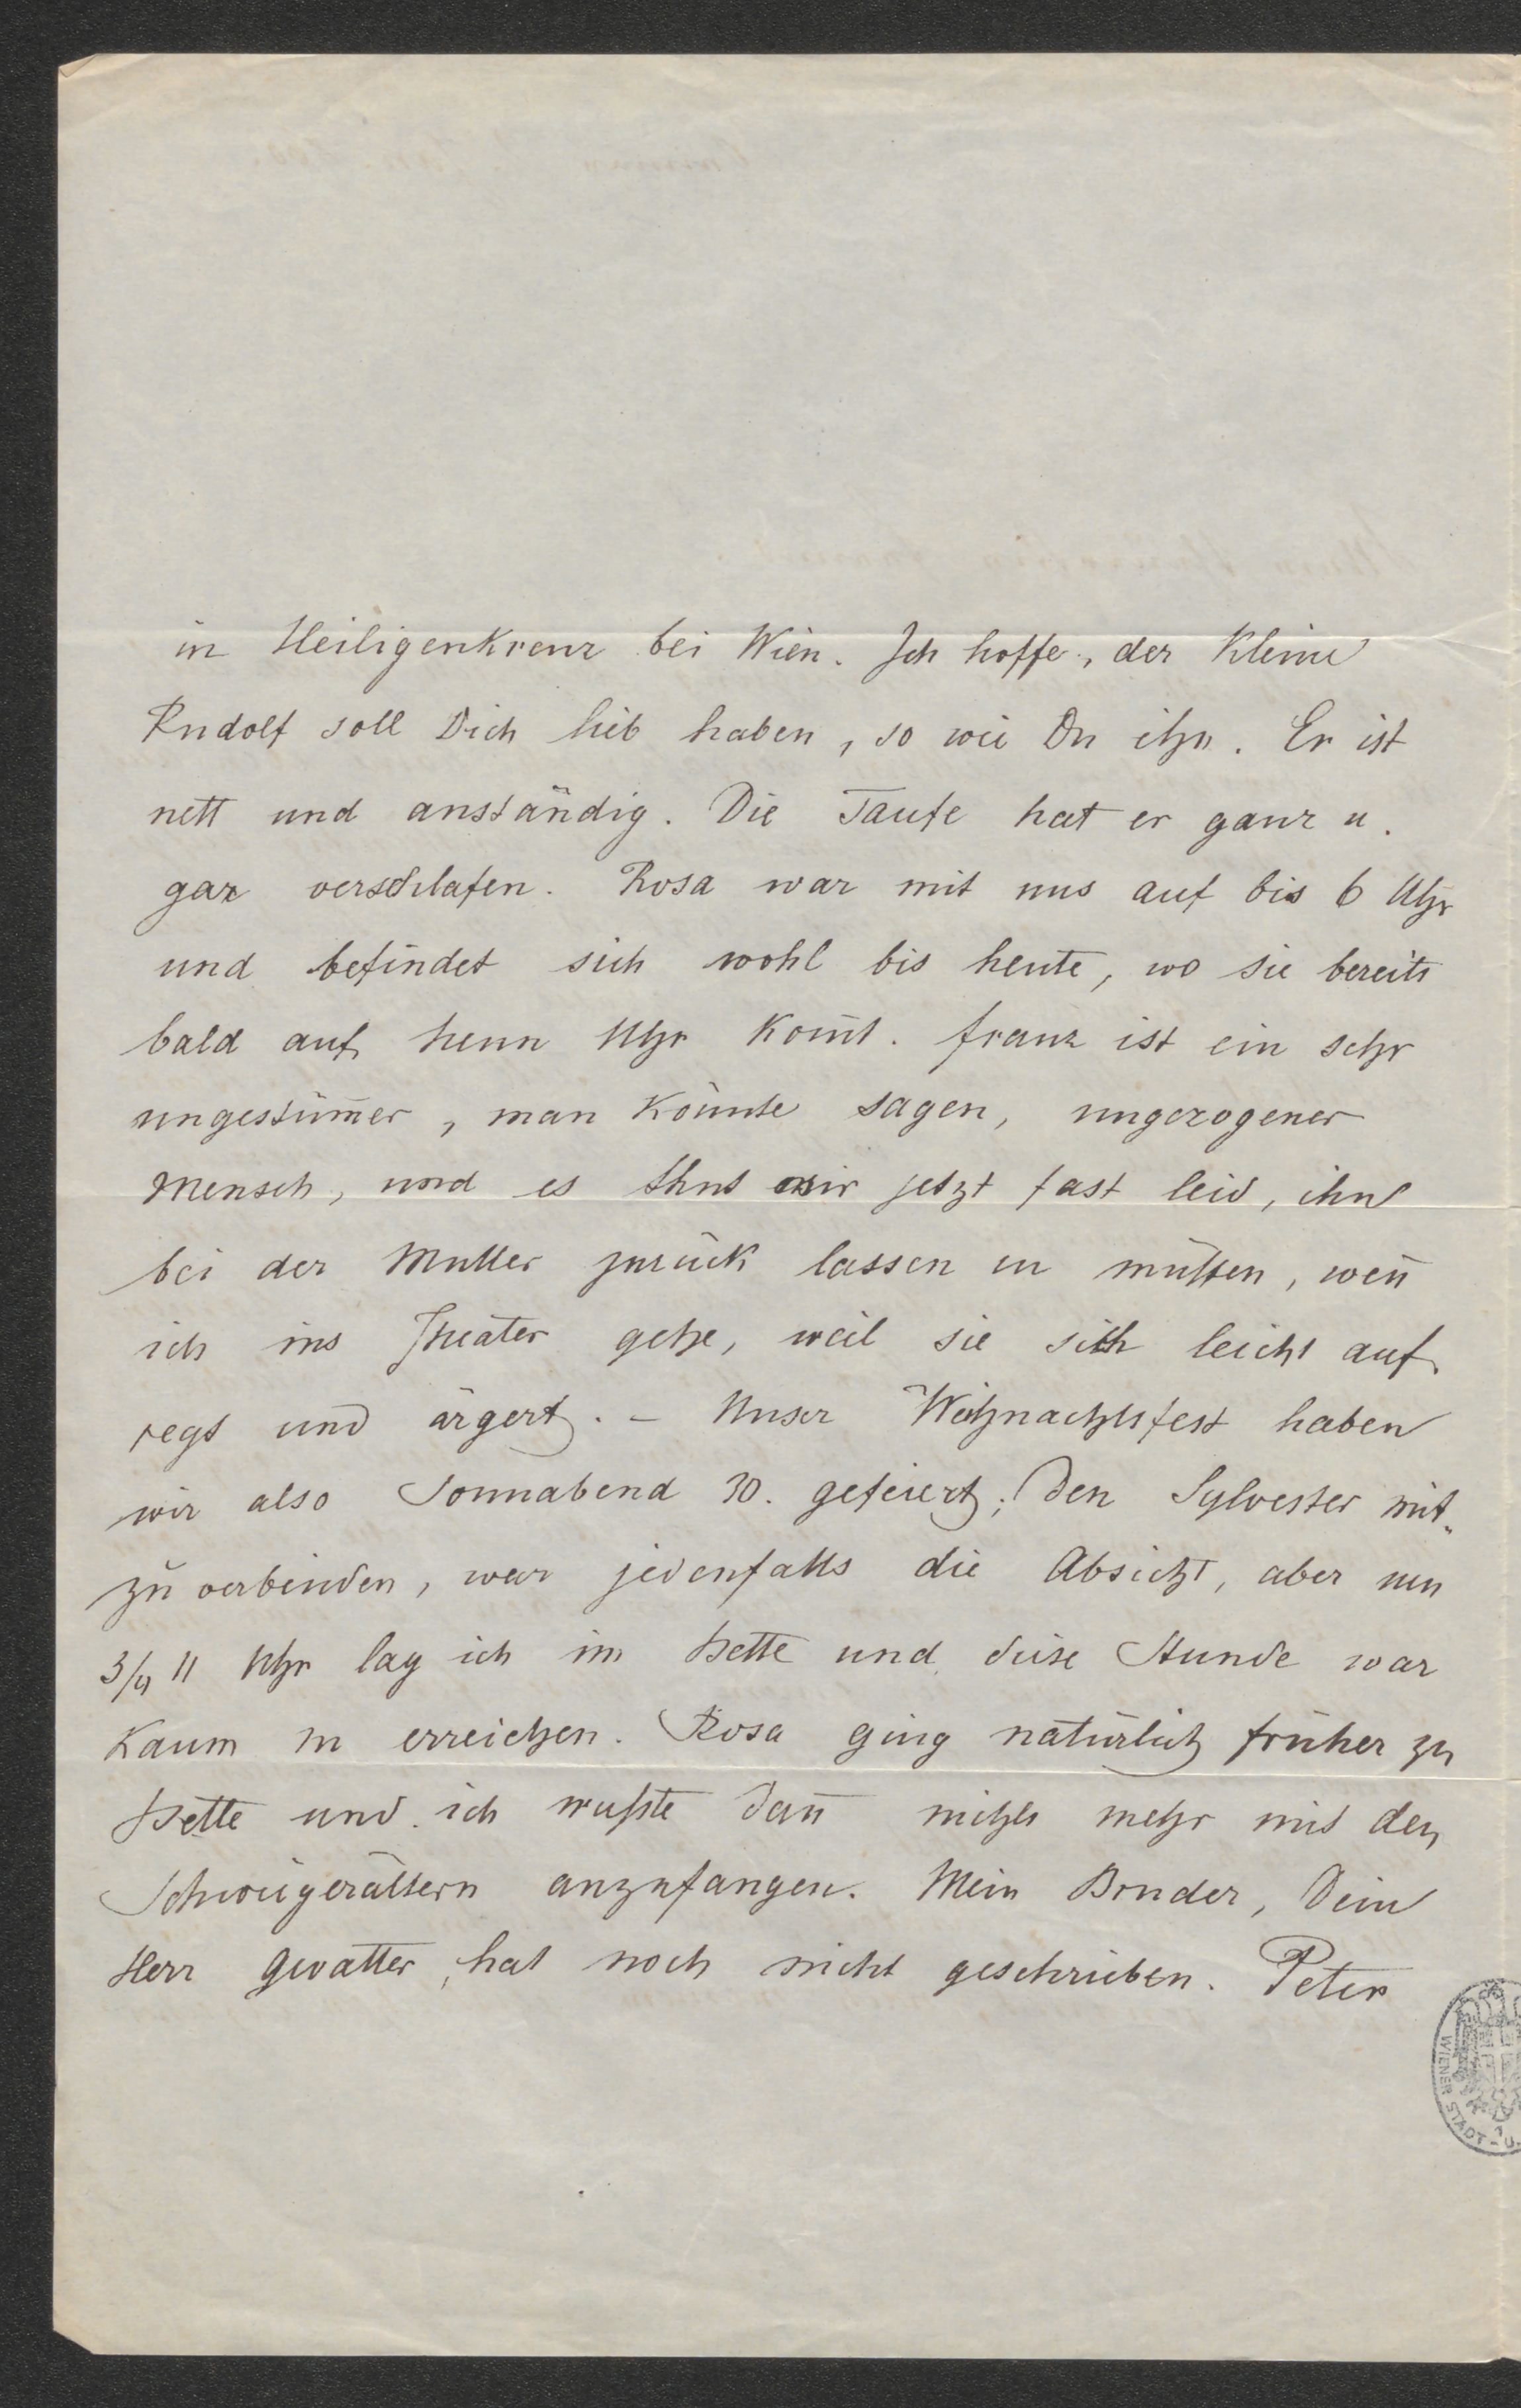 in Heiligenkreuz bei Wien. Ich hoffe, der kleine
Rudolf soll Dich lieb haben, so wie Du ihn. Er ist
nett und anständig. Die Taufe hat er ganz u.
gar verschlafen. Rosa war mit uns auf bis 6 Uhr
und befindet sich wohl bis heute, wo sie bereits
bald auf neun Uhr kom̄t. Franz ist ein sehr
ungestüm̄er, man könnte sagen, ungezogener
Mensch, und es thut mir jetzt fast leid, ihn
bei der Mutter zurück lassen zu müssen, weñ
ich ins Theater gehe, weil sie sich leicht auf
regt und ärgert. – Unser Weihnachtsfest haben
wir also Sonnabend 30. gefeiert; den Sylvester mit-
zu verbinden, war jedenfalls die Absicht, aber um
3/4 11 Uhr lag ich im Bette und diese Stunde war
kaum zu erreichen. Rosa ging natürlich früher zu
Bette und ich wußte dañ nichts mehr mit den
Schwiegerältern anzufangen. Mein Bruder, Dein
Herr Gevatter, hat noch nicht geschrieben. Peter
WIENER STADT- U.